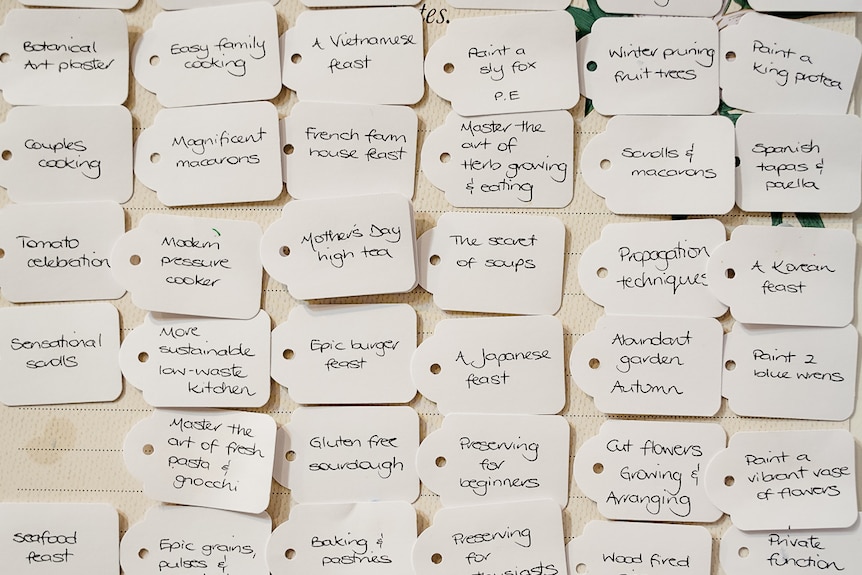 tes.
Botanical
Art plaster
Easy family
cooking
A Vietnamese
feast
Paint a
sly fox
P.E
Winter pruning
fruit trees
Paint a
king protea
Couples
cooking
Magnificent
macarons
French farm
house feast
Master the
art of
Herb growing
& eating
Scrolls &
macarons
Spanish
tapas &
paella
Tomato
celebration
Modern
pressure
cooker
Mother's Day
high tea
The secret
of soups
Propagation
techniques
A Korean
feast
Sensational
scrolls
More
sustainable
low-waste
kitchen
Epic burger
feast
A Japanese
feast
Abundant
garden
Autumn
Paint 2
blue wrens
Master the
art of fresh
pasta &
gnocchi
Gluten free
sourdough
Preserving
for
beginners
Cut flowers
Growing &
Arranging
Paint a
vibrant vase
of flowers
seafood
feast
Epic grains,
pulses &
Baking &
pastries
Preserving
for
Wood fired
Private
function